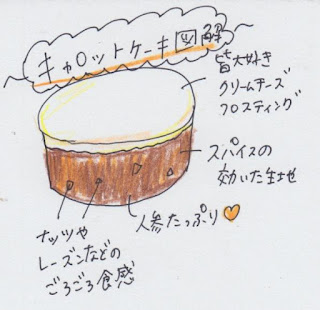 キャロットケーキ図解
皆大好き
クリームチーズ
フロスティング
スパイスの
効いた生地
人参たっぷり
ナッツや
レーズンなどの
ごろごろ食感